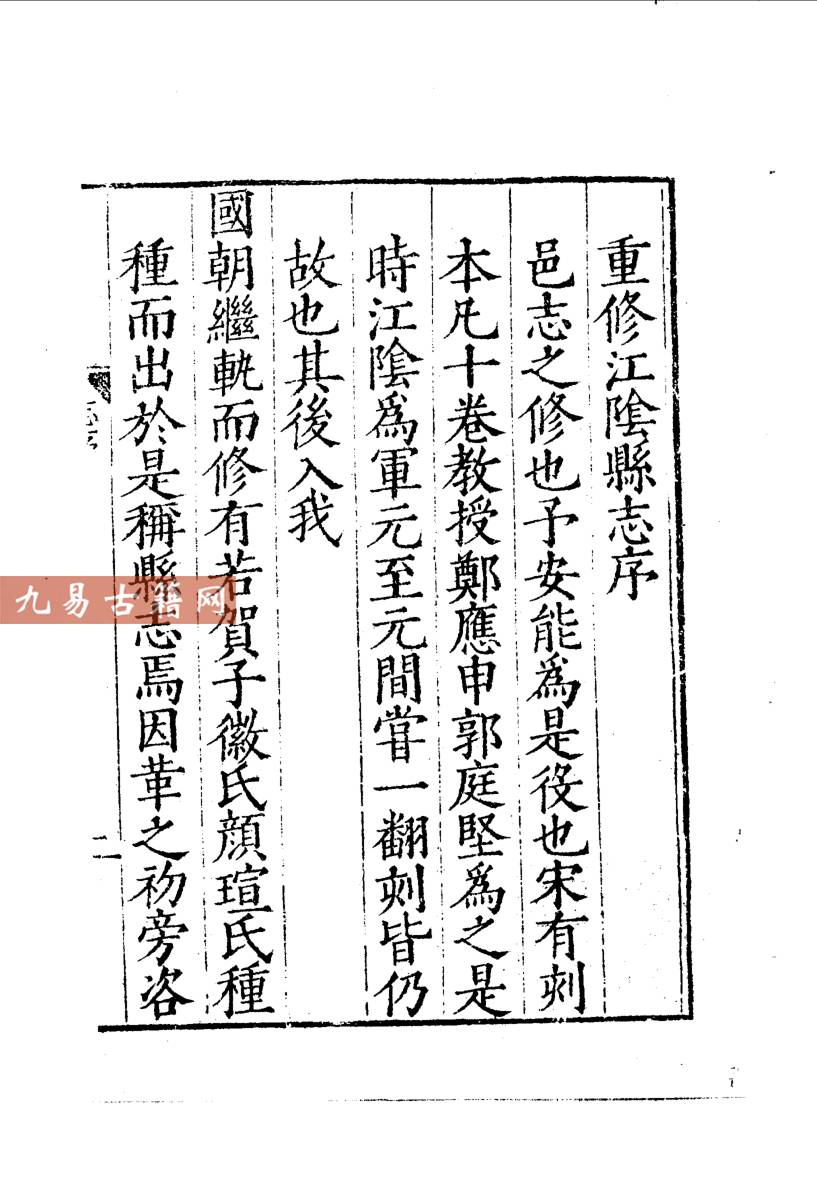 重修江陰縣志序
邑志之修也予安能爲是役也宋有刻
本凡十卷教授鄭應申郭庭堅爲之是
時江陰爲軍元至元間嘗一翻刻皆仍
故也其後入我
國朝繼軌而修有若賀子徽氏顏瑄氏種
種而出於是稱縣志焉因革之初旁咨
志序
二
九易古籍网